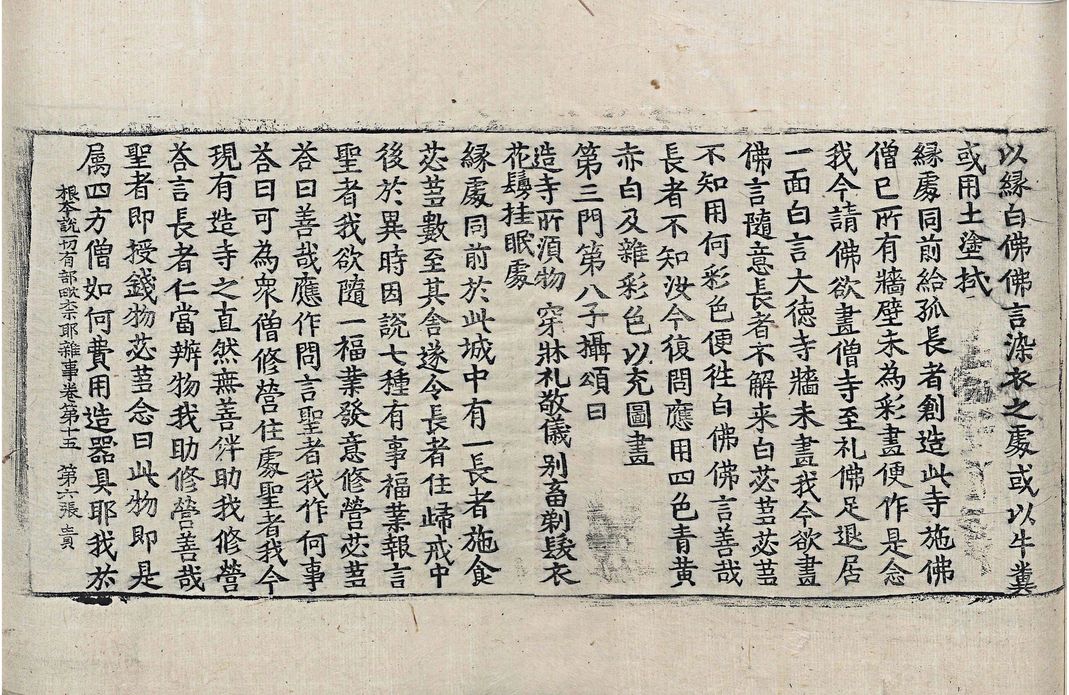 以縁白佛佛言染衣之處或以牛糞
或用土塗拭
縁處同前給孤長者創造此寺施佛
僧已所有牆壁未為彩畫便作是念
我今請佛欲畫僧寺至礼佛足退居
一面白言大德寺牆未畫我今欲畫
佛言隨意長者不解来白苾芻苾芻
不知用何彩色便徃白佛佛言善哉
長者不知汝今復問應用四色青黄
赤白及雜彩色以充圖畫
第三門第八子攝頌曰
造寺所須物 穿牀礼敬儀 别畜剃髮衣
花鬘挂眠處
縁處同前於此城中有一長者施食
苾芻數至其舎遂令長者住歸戒中
後於異時因說七種有事福業報言
聖者我欲隨一福業發意修營苾芻
荅曰善哉應作問言聖者我作何事
荅曰可為衆僧修營住處聖者我今
現有造寺之直然無善伴助我修營
荅言長者仁當辦物我助修營善哉
聖者即授錢物苾芻念曰此物即是
属四方僧如何費用造器具耶我於
根夲說一切有部毗柰耶雜事卷第十五 第六張